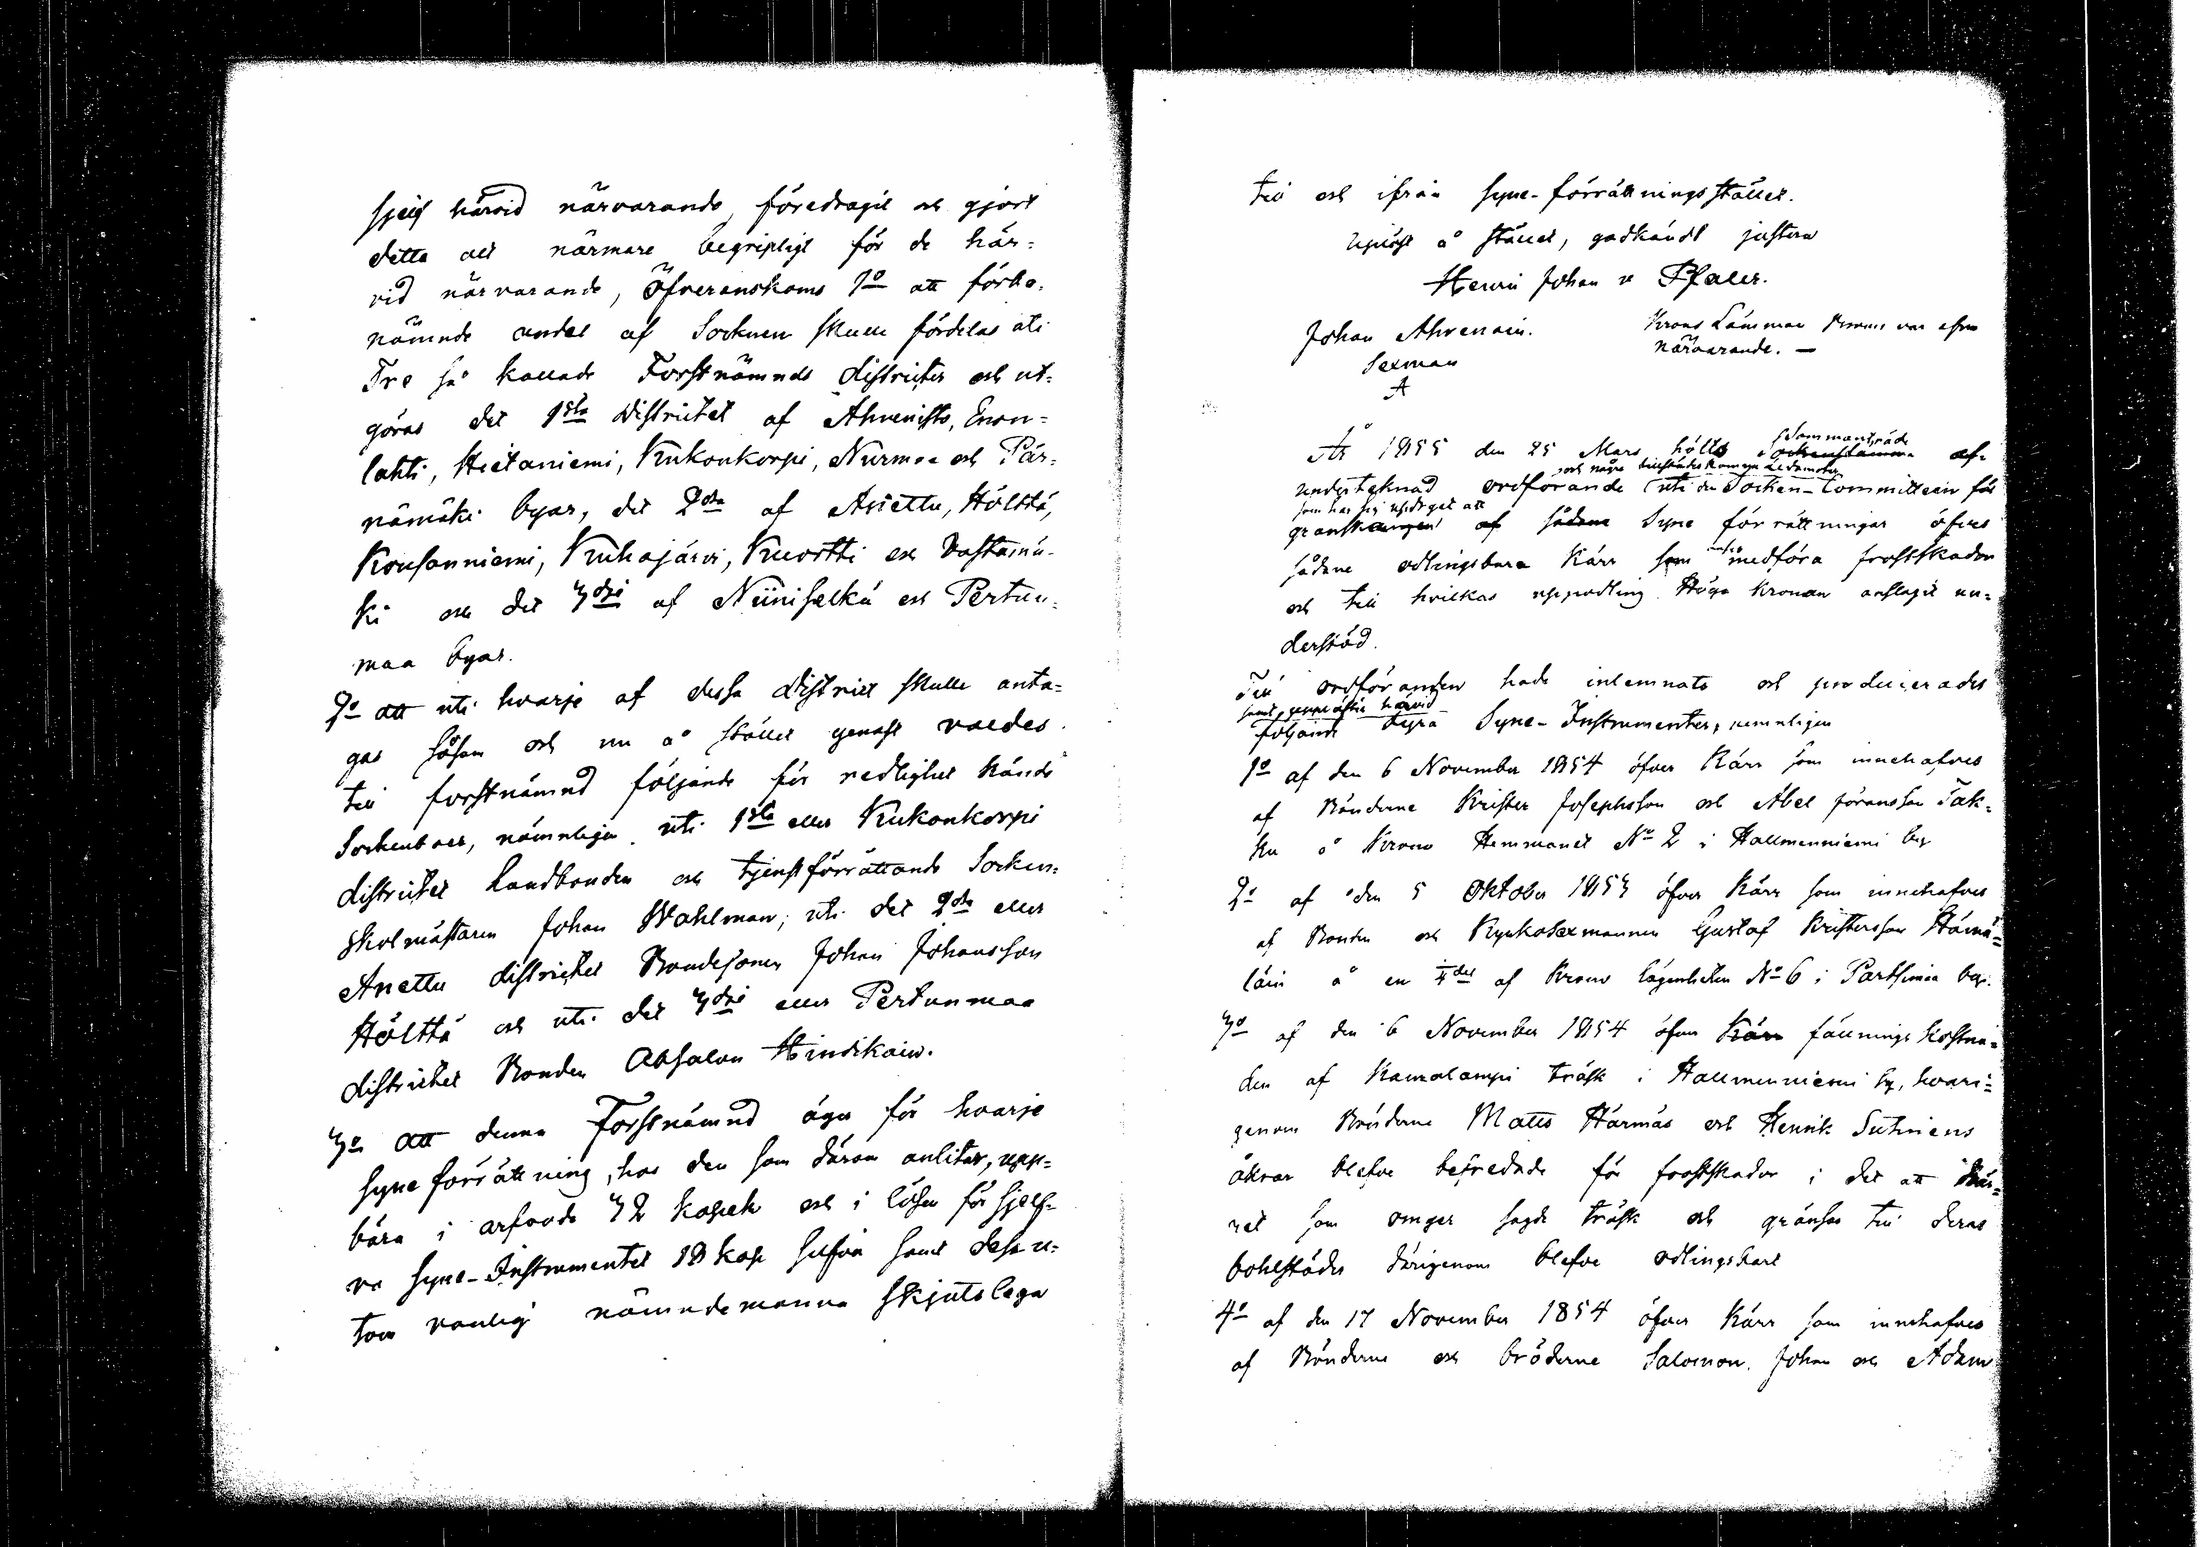 sjelf härvid närvarande, föredragit och gjort
detta allt närmare begripligt för de här-
vid närvarande, Öfverenskoms 1o att förbe-
nämnde andel af Socknen skulle fördelas uti
Tre så kallade Forstnämnds districter och ut-
göras det 1sta Districtet af Ahvenisto, Enon-
lahti, Hietaniemi, Kukonkorpi, Nurmaa och Pär-
nämäki byar, det 2dra af Anettu, Hölttä,
Koufanniemi, Kuhajärvi, Kuortti och Vastamä-
ki och det 3dje af Niiniselkä och Pertun-
maa byar.
2o att uti hvarje af dessa District skulle anta-
gas såsom och nu å stället genast valdes
till forstnämnd följande för redlighet kände
Sockenboer, nämnligen uti 1sta eller Kukonkorpi
districtet Landbonden och tjenstförrättande Socken-
skolmästaren Johan Wahlman; uti det 2dra eller
Anettu districtet Bondesonen Johan Johansson
Hölttä och uti det 3dje eller Pertunmaa
districtet Bonden Absalon Hindikain.
3o att denna Forstnämnd äger för hvarje
syne förrättning, hos den som därom anlitar, upp-
bära i arfvode 32 kopek och i lösen för sjelf-
va syne-Instrumentet 18 kop silfver samt dessu-
tom vanlig nämndemanna skjutslega
till och ifrån syne-förrättningsstället.
Uppläst å stället, godkändt justera
Henric Johan v Pfaler.
Johan Ahvenain. Krono Länsman var äfven
Sexman närvarande. —
A
År 1855 den 25 Mars hölls Sammanträde Sockenstämma af
undertecknad ordförande och några tillstädeskomne Ledamöter uti den Socken-Committeen för
som har sig updraget att
granskningen af sådane Syne förrättningar öfver
sådane odlingsbara Kärr som medföra frostskador
och till hvilkas uppodling Höga Kronan anslagit un-
derstöd.
Till ordföranden hade inlemnats och producerades
samt härvid
följande fyra Syne-Instrumenter, nemnligen
1o af den 6 November 1854 öfver Kärr som innehafves
af Bönderne Krister Josephsson och Abel Göransson Tak-
ku å Krono Hemmanet No 2 i Hallmenniemi by
2o af den 5 Oktober 1853 öfver Kärr som innehafves
af Bonden och Kyrkosexmannen Gustaf Kristersson Hämä-
läin å en del af Krono lägenheten No 6 i Partsimaa by.
3o af den 6 November 1854 öfver Kärr fällnings kostna-
den af Kauralampi träsk i Hallmenniemi by, hvari-
genom Bönderne Matts Härmäs och Henrik Sutinens
åkrar blefve befredade för frostskador i det att Kär-
ret som omger sagde träsk och gränsar till deras
bohlstäder därigenom blefve odlingsbart
4o af den 17 November 1854 öfver Kärr som innehafves
af Bönderne och bröderne Salomon, Johan och Adam